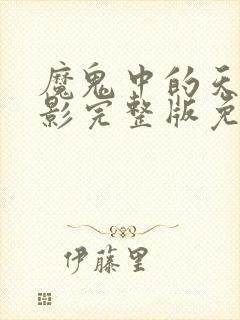 魔鬼中的天
影完整版免
伊藤里